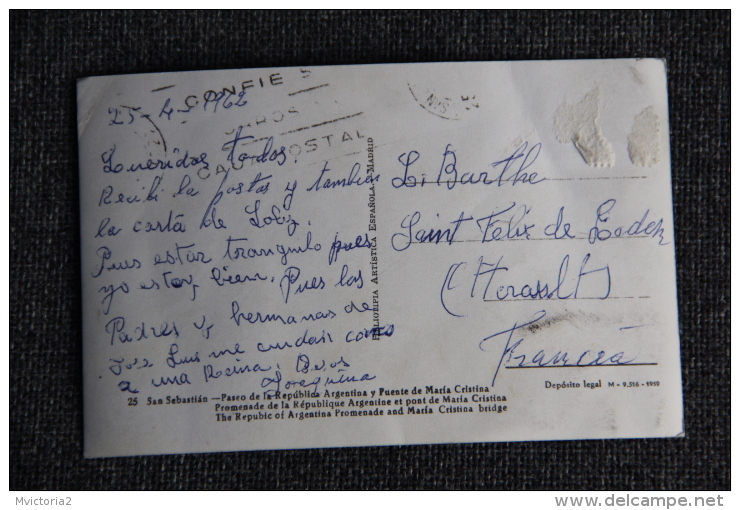 25-4-1962
CONFIE S
CAJA POSTAL
Queridos todos,
Recibi la postas y tambien
la carta de Loly.
Pues estar tranquilo pues
yo estoy bien. Pues los
Padres y hermanas de
Jose Luis me cuidan como
a una Reina. Besos
Joaquina
HELIOTIPIA ARTÍSTICA ESPAÑOLA - MADRID
L. Barthe
Saint Felix de Lodez
(Herasslt)
Francia
25 SAN SEBASTIÁN —PASEO DE LA REPÚBLICA ARGENTINA Y PUENTE DE MARÍA CRISTINA
PROMENADE DE LA RÉPUBLIQUE ARGENTINE ET PONT DE MARÍA CRISTINA
THE REPUBIC OF ARGENTINA PROMENADE AND MARÍA CRISTINA BRIDGE
Depósito legal M - 9.516 - 1959
Mvictoria2
delcampe.net